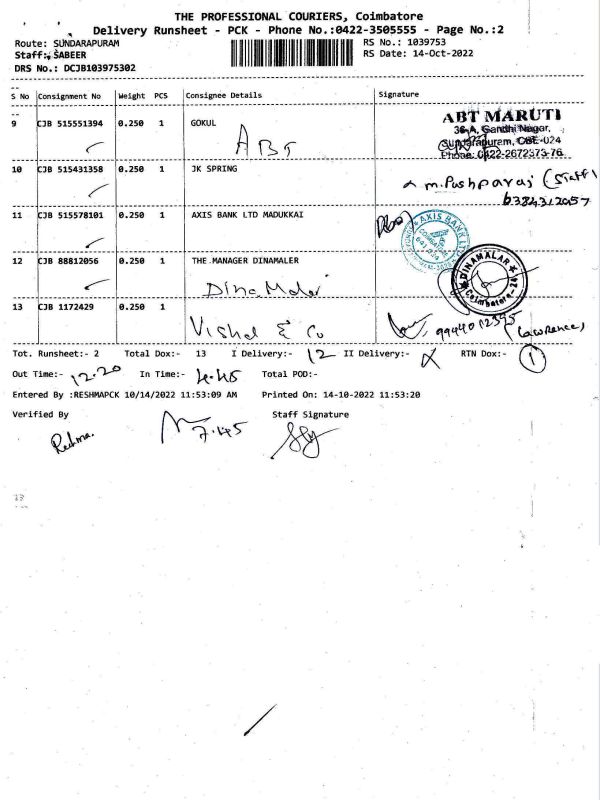 THE PROFESSIONAL COURIERS, Coimbatore
Delivery Runsheet - PCK - Phone No.:0422-3505555 - Page No.:2
Route: SUNDARAPURAM RS No.: 1039753
Staff: SABEER RS Date: 14-Oct-2022
DRS No.: DCJB103975302
S No Consignment No Weight PCS Consignee Details Signature
9 CJB 515551394 0.250 1 GOKUL
ABT
ABT MARUTI
36-A, Gandhi Nagar,
Sundarapuram, CBE-024
Phone: 0422-2672373-76
10 CJB 515431358 0.250 1 JK SPRING
m. Pushparaj (Staff)
6384312057
11 CJB 515578101 0.250 1 AXIS BANK LTD MADUKKAI
AXIS BANK LTD
COIMBATORE
12 CJB 88812056 0.250 1 THE.MANAGER DINAMALER
Dina Maler
DINAMALAR
Coimbatore-24
13 CJB 1172429 0.250 1
Vishal & Co
9944012395
(Lawrence)
Tot. Runsheet:- 2 Total Dox:- 13 I Delivery:- 12 II Delivery:- RTN Dox:- 1
Out Time:- 12.20 In Time:- 4.45 Total POD:-
Entered By :RESHMAPCK 10/14/2022 11:53:09 AM Printed On: 14-10-2022 11:53:20
Verified By Staff Signature
Reshma.
7.45
13